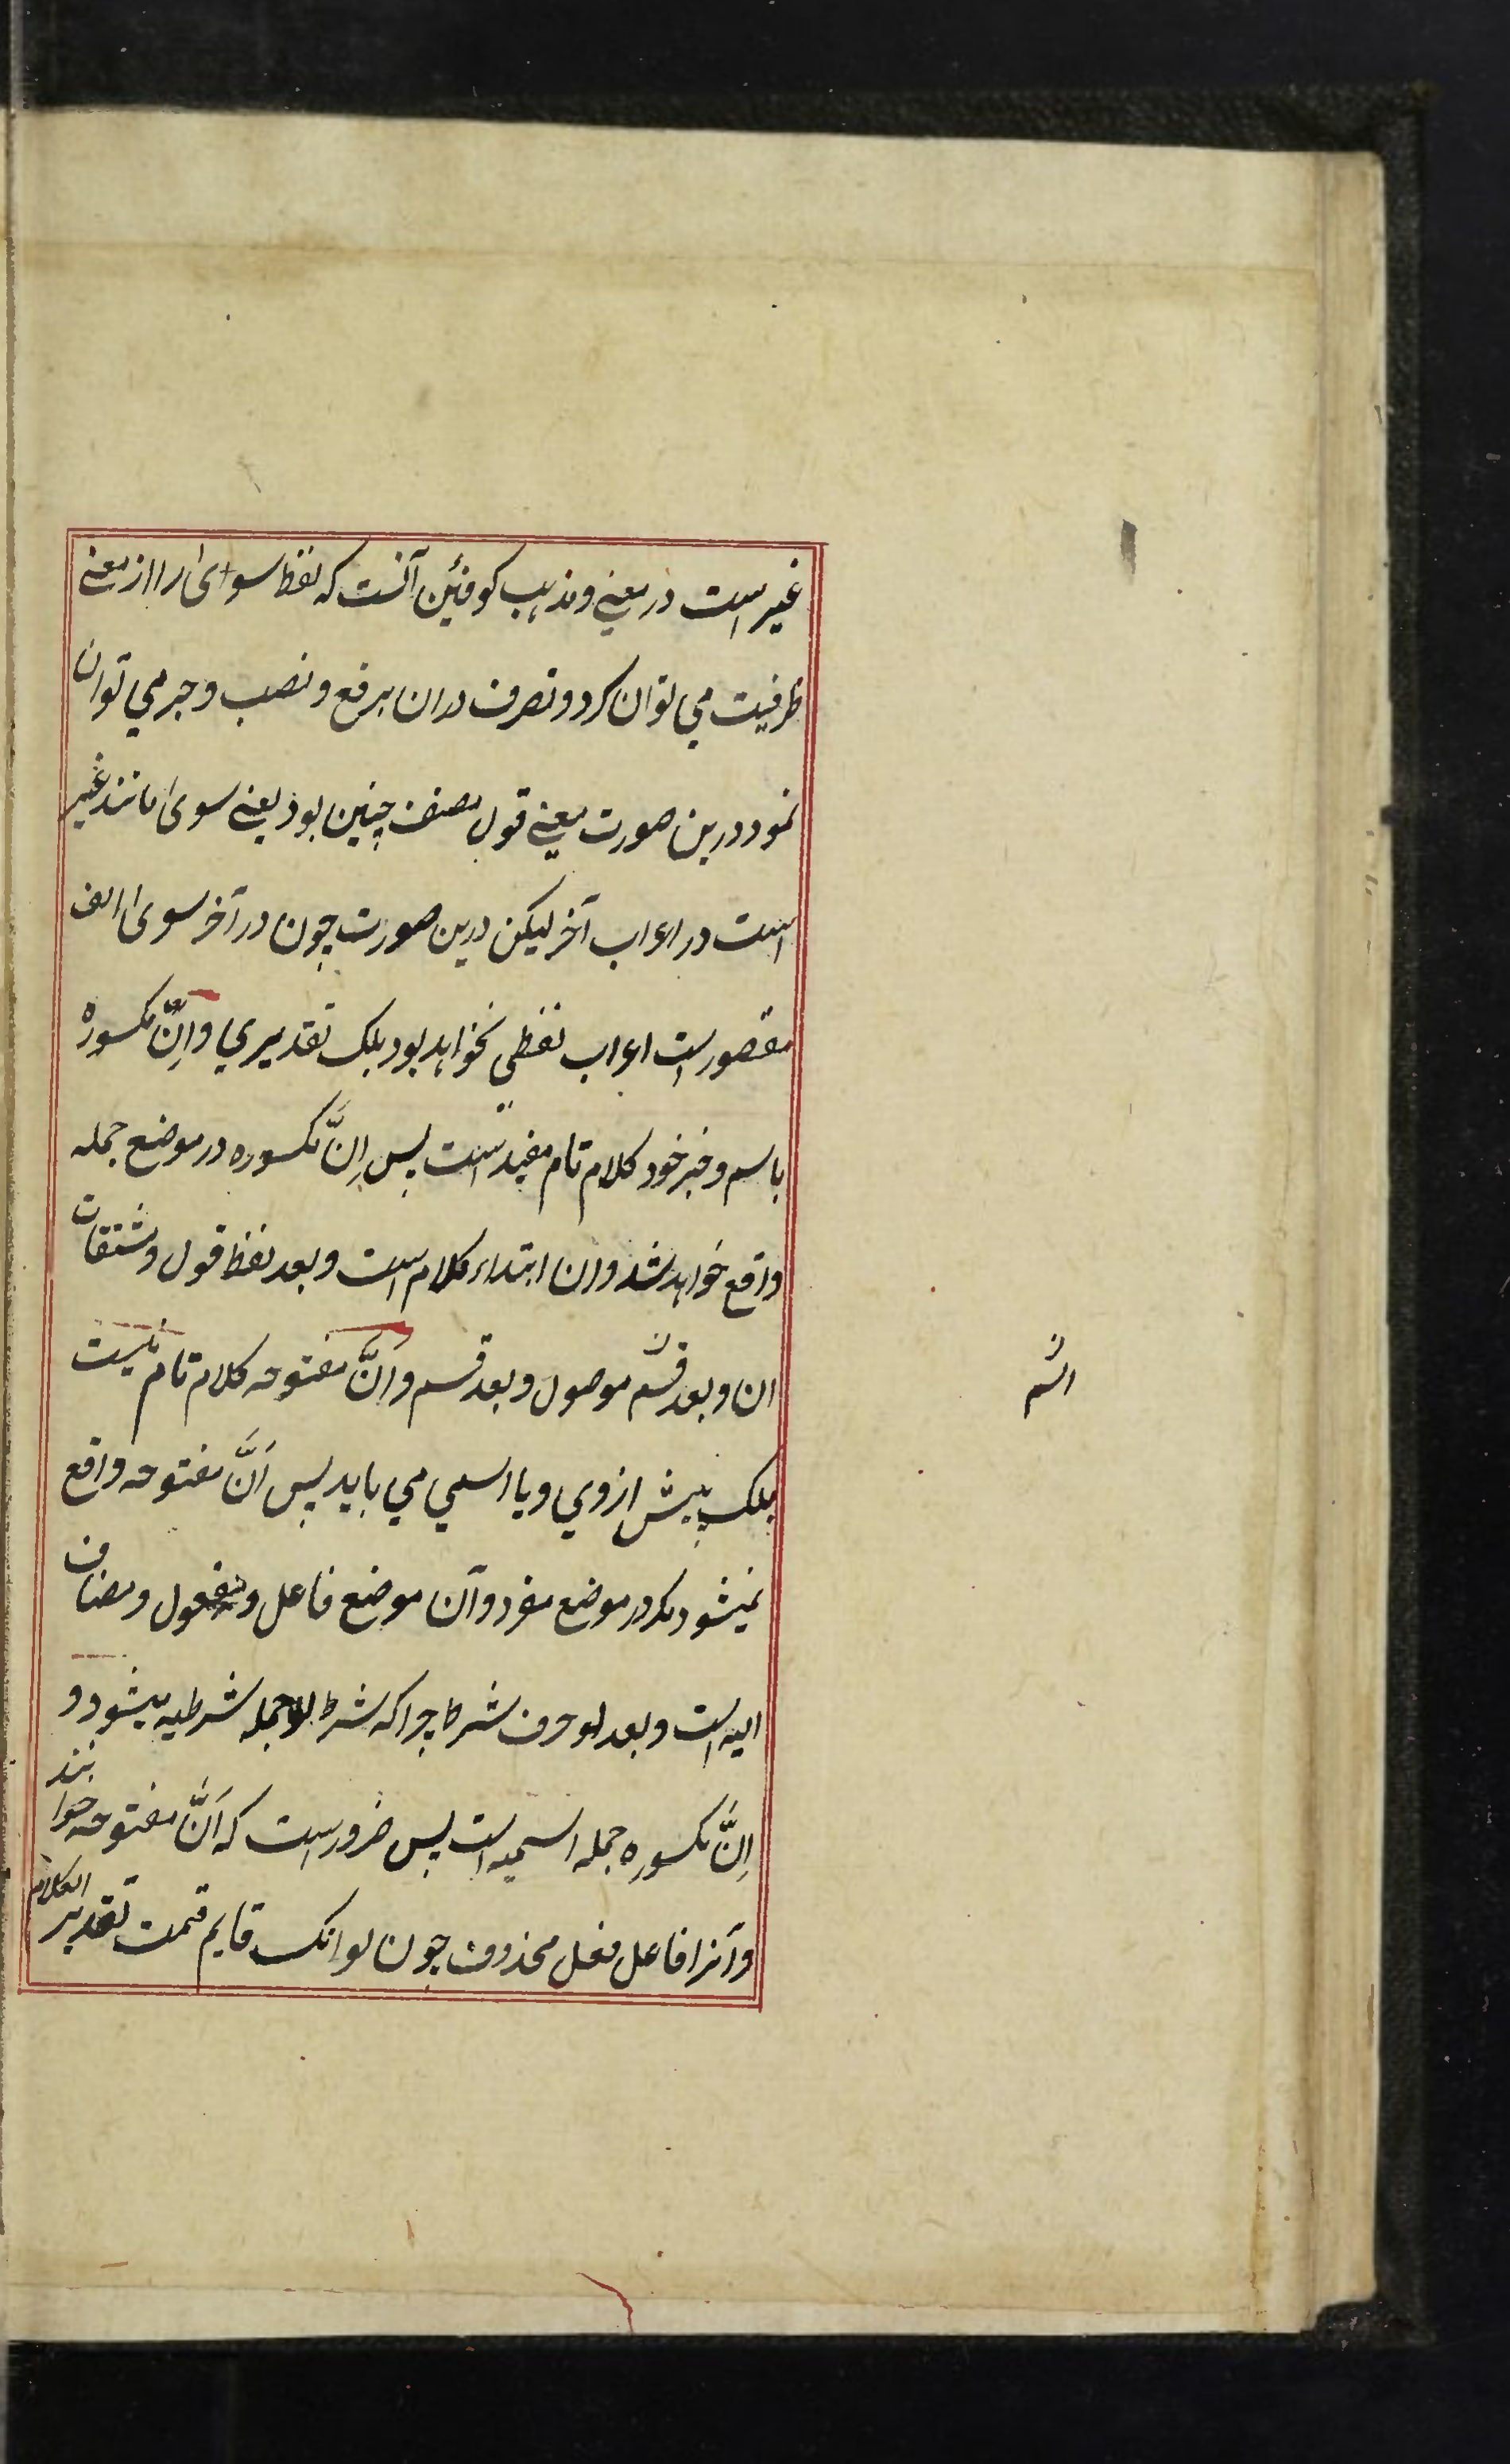 غیر است در معنے و مذہب کوفئین آنست کہ لفظ سوای را از معنے
ظرفیت می توان کرد و تصرف دران برفع و نصب و جر می توان
نمود درین صورت معنے قول مصنف چنین بود یعنے سوی مانند غیر
است در اعراب آخر لیکن درین صورت چون در آخر سوی الف
مقصور است اعراب لفظی نخواہد بود بلک تقدیری و اِنَّ مکسورہ
باسم و خبر خود کلام تام مفید است پس اِنَّ مکسورہ در موضع جملہ
واقع خواہد شد و ان ابتداء کلام است و بعد لفظ قول و مشتقات
ان و بعد قسم موصول و بعد قسم و اَنَّ مفتوحہ کلام تام نیست
بلک پیش ازوی و یا اسمی می باید پس اَنَّ مفتوحہ واقع
نمیشود مکر در موضع مفرد و آن موضع فاعل و مفعول و مضاف
الیہ است و بعد لو حرف شرط چراکہ شرط لو جملہ شرطیہ میشود و
اِنَّ مکسورہ جملہ اسمیہ است پس ضرور است کہ اَنَّ مفتوحہ خوانند
و آنرا فاعل فعل محذوف چون لو انک قایم قمت تقدیر الکلام
اسم